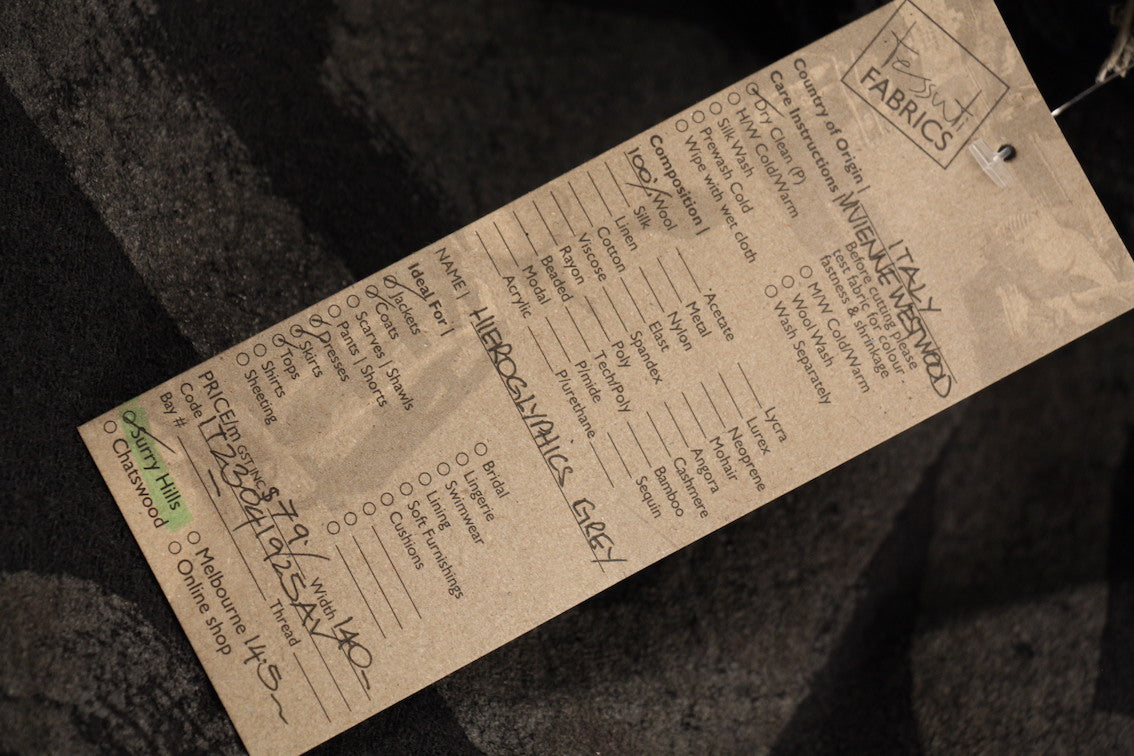 Tessuti
FABRICS
Country of Origin | ITALY
Care Instructions | VIVIENNE WESTWOOD
Dry Clean (P)
H/W Cold/Warm
Silk Wash
Prewash Cold
Wipe with wet cloth
Before cutting please
test fabric for colour
fastness & shrinkage
M/W Cold/Warm
Wool Wash
Wash Separately
Composition |
100% Wool
Silk
Linen
Cotton
Viscose
Rayon
Beaded
Modal
Acrylic
Acetate
Metal
Nylon
Elast
Spandex
Poly
Tech/Poly
P/mide
P/urethane
Lycra
Lurex
Neoprene
Mohair
Angora
Cashmere
Bamboo
Sequin
NAME | HIEROGLYPHICS GREY
Ideal For |
Jackets
Coats
Scarves | Shawls
Pants | Shorts
Dresses
Skirts
Tops
Shirts
Sheeting
Bridal
Lingerie
Swimwear
Lining
Soft Furnishings
Cushions
PRICE/m GST INC $79/ Width 140
Code | T230419/25AV
Bay # Thread
Surry Hills
Chatswood
Melbourne 14.5m
Online shop